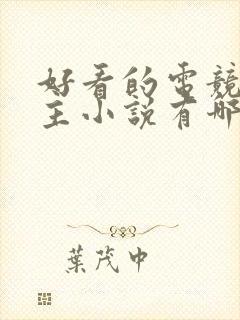 好看的電競
主小說有哪
葉茂中